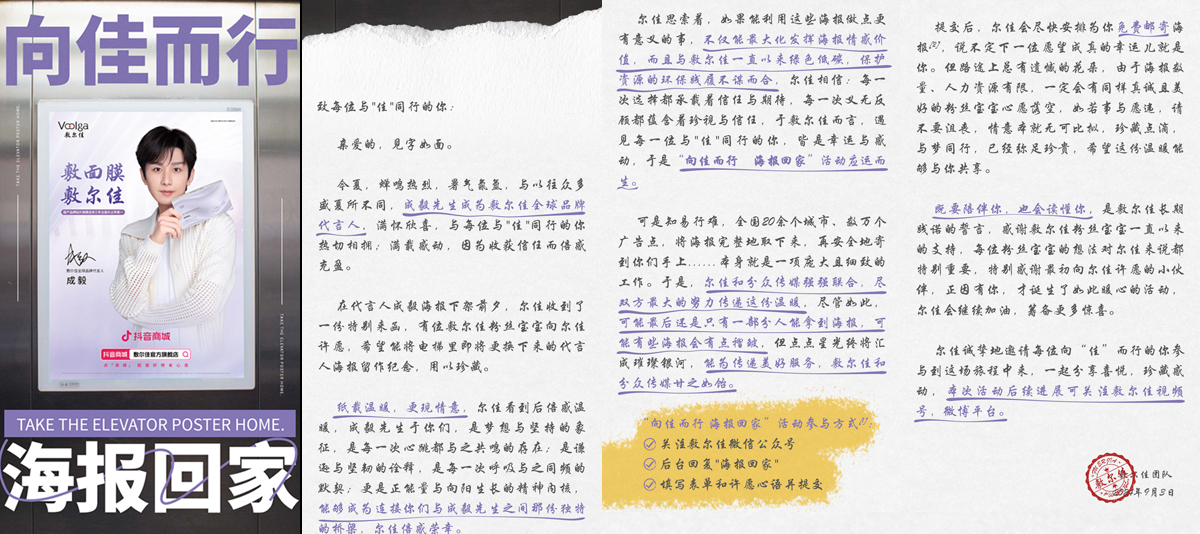 向佳而行
TAKE THE ELEVATOR POSTER HOME.
Voolga
敷尔佳
敷面膜
敷尔佳
敷尔佳全球品牌代言人
成毅
抖音商城
抖音商城 敷尔佳官方旗舰店
TAKE THE ELEVATOR POSTER HOME.
TAKE THE ELEVATOR POSTER HOME.
海报回家
致每位与"佳"同行的你：
亲爱的，见字如面。
今夏，蝉鸣热烈，暑气氤氲，与以往众多
盛夏所不同，成毅先生成为敷尔佳全球品牌
代言人，满怀欣喜，与每位与"佳"同行的你
热切相拥；满载感动，因为收获信任而倍感
充盈。
在代言人成毅海报下架前夕，尔佳收到了
一份特别来函，有位敷尔佳粉丝宝宝向尔佳
许愿，希望能将电梯里即将更换下来的代言
人海报留作纪念，用以珍藏。
纸载温暖，更现情意，尔佳看到后倍感温
暖，成毅先生于你们，是梦想与坚持的象
征，是每一次心跳都与之共鸣的存在；是谦
逊与坚韧的诠释，是每一次呼吸与之同频的
默契；更是正能量与向阳生长的精神内核，
能够成为连接你们与成毅先生之间那份独特
的桥梁，尔佳倍感荣幸。
尔佳思索着，如果能利用这些海报做点更
有意义的事，不仅能最大化发挥海报情感价
值，而且与敷尔佳一直以来绿色低碳，保护
资源的环保线履不谋而合，尔佳相信：每一
次选择都承载着信任与期待，每一次义无反
顾都蕴含着珍视与信任，于敷尔佳而言，遇
见每一位与"佳"同行的你，皆是幸运与感
动，于是"向佳而行 海报回家"活动应运而
生。
可是知易行难，全国20余个城市、数万个
广告点，将海报完整地取下来，再安全地寄
到你们手上……本身就是一项庞大且细致的
工作。于是，尔佳和分众传媒强强联合，尽
双方最大的努力传递这份温暖，尽管如此，
可能最后还是只有一部分人能拿到海报，可
能有些海报会有点褶皱，但点点星光终将汇
成璀璨银河，能为传递美好服务，敷尔佳和
分众传媒甘之如饴。
"向佳而行 海报回家"活动参与方式[1]：
关注敷尔佳微信公众号
后台回复"海报回家"
填写表单和许愿心语并提交
提交后，尔佳会尽快安排为你免费邮寄海
报[2]，说不定下一位愿望成真的幸运儿就是
你。但路途上总有遗憾的花朵，由于海报数
量、人力资源有限，一定会有同样真诚且美
好的粉丝宝宝心愿落空，如若事与愿违，请
不要沮丧，情意本就无可比拟，珍藏点滴，
与梦同行，已经弥足珍贵，希望这份温暖能
够与你共享。
既要陪伴你，也会读懂你，是敷尔佳长期
践诺的誓言，感谢敷尔佳粉丝宝宝一直以来
的支持，每位粉丝宝宝的想法对尔佳来说都
特别重要，特别感谢最初向尔佳许愿的小伙
伴，正因有你，才诞生了如此暖心的活动，
尔佳会继续加油，筹备更多惊喜。
尔佳诚挚地邀请每位向"佳"而行的你参
与到这场旅程中来，一起分享喜悦，珍藏感
动，本次活动后续进展可关注敷尔佳视频
号，微博平台。
尔佳团队